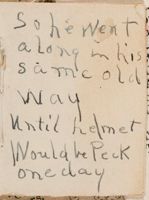 So he went
along in his
same old
way
Until he met
Would be Peck
one day